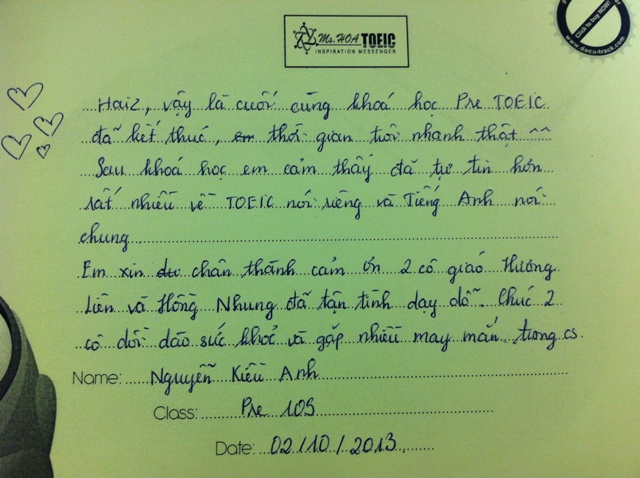 Ms. HOA TOEIC
INSPIRATION MESSENGER
Click to buy NOW!
www.docu-track.com
Haiz, vậy là cuối cùng khoá học Pre TOEIC
đã kết thúc, em thời gian trôi nhanh thật ^^
Sau khoá học em cảm thấy đã tự tin hơn
rất nhiều về TOEIC nói riêng và Tiếng Anh nói
chung
Em xin chân thành cảm ơn 2 cô giáo Hương
Liên và Hồng Nhung đã tận tình dạy dỗ. Chúc 2
cô dồi dào sức khoẻ và gặp nhiều may mắn trong cs.
Name: Nguyễn Kiều Anh
Class: Pre 109
Date: 02/10/2013